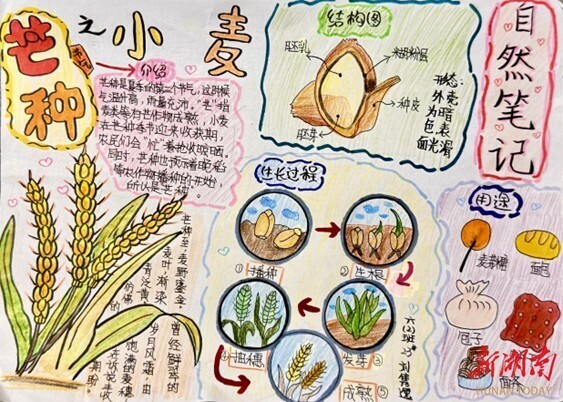 芒种
节气
之小麦
自然笔记
介绍
芒种是夏季的第三个节气,这时候
气温升高,雨量充沛。"芒"指
小麦等有芒作物成熟,小麦
在芒种季节迎来收获期,
农民们会"忙"着抢收晾晒。
同时,芒种也预示着晚稻
等农作物播种的开始,
所以是"芒种"。
结构图
胚乳
糊粉层
种皮
胚芽
形态:
外壳
为暗
色表
面光滑
生长过程
①播种
②生根
③发芽
④抽穗
⑤成熟
用途
麦芽糖
面包
包子
面条
芒种至,麦野鎏金。
麦叶,渐染
青泛黄,
曾经鲜翠的
岁月风霜,由
饱满的麦穗
六(2)班
新湖南
HUNAN TODAY